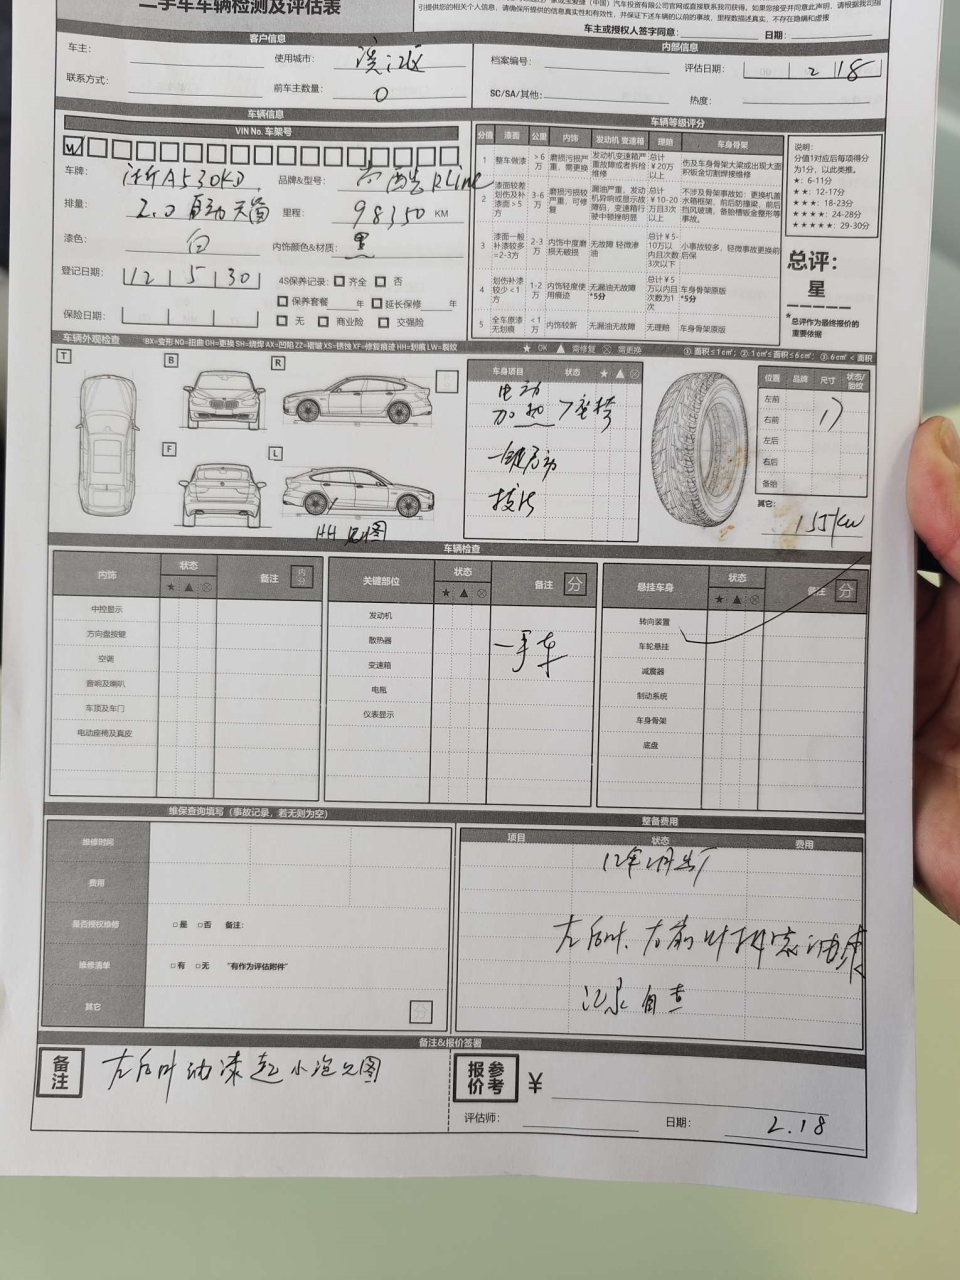 二手车车辆检测及评估表
车主或授权人签字同意: 日期:
客户信息
内部信息
车主:
使用城市:
档案编号:
评估日期: 2 18
联系方式:
前车主数量: 0
SC/SA/其他:
热度:
车辆信息
VIN No. 车架号
车辆等级评分
车牌:
品牌&型号: 尚酷RLine
排量: 2.0 自动 天窗
里程: 98350 KM
漆色: 白
内饰颜色&材质: 黑
登记日期: 12 5 30
4S保养记录: 齐全 否
保养套餐 年 延长保修 年
保险日期:
无 商业险 交强险
分值 漆面 公里 内饰 发动机 变速箱 理赔 车身骨架
1 整车做漆 >6万 磨损污损严重，需更换 发动机变速箱严重故障或者拆检维修 总计¥20万以上 伤及车身骨架大梁或出现大面积钣金切割焊接维修
2 漆面较差划伤及补漆面>5方 3-6万 磨损污损较严重，可修复 漏油严重、发动机异响或显示故障码，变速箱行驶中顿挫明显 总计¥10-20万且3次以上 不涉及骨架事故如：更换机盖水箱框架，前后防撞梁，前后挡风玻璃，备胎槽钣金整形等事故。
3 漆面一般补漆较多=2-3方 2-3万 内饰中度磨损无破损 无故障 轻微渗油 总计¥5-10万以内且次数3次以下 小事故较多，轻微事故更换前后保
4 划伤补漆较少<1方 1-2万 内饰轻度使用痕迹 无漏油无故障*5分 总计¥5万以内且次数为1次 车身骨架原版*5分
5 全车原漆无划痕 <1万 内饰较新 无漏油无故障 无理赔 车身骨架原版
说明:
分值1对应后每项得分为1分，以此类推。
★: 6-11分
★★: 12-17分
★★★: 18-23分
★★★★: 24-28分
★★★★★: 29-30分
总评:
星
*总评作为最终报价的重要依据
车辆外观检查 BX=变形 NQ=扭曲 GH=更换 SH=烧焊 AX=凹陷 ZZ=褶皱 XS=锈蚀 XF=修复痕迹 HH=划痕 LW=裂纹 ★ OK ▲ 需修复 ⊗ 需更换 ①. 面积≤1c㎡; ②. 1c㎡≤面积≤6c㎡; ③. 6c㎡<面积
T B R
F L
HH 见图
车身项目 状态 ★ ▲ ⊗
电动
加热 > 座椅
一键启动
位置 品牌 尺寸 状态/胎纹
左前
右前
左后
右后
备胎
17
其它: 155kw
车辆检查
内饰 状态 ★ ▲ ⊗ 备注 内分
关键部位 状态 ★ ▲ ⊗ 备注 分
悬挂车身 状态 ★ ▲ ⊗ 备注 分
中控显示
方向盘按键
空调
音响及喇叭
车顶及车门
电动座椅及真皮
发动机
散热器
变速箱
电瓶
仪表显示
一手车
转向装置
车轮悬挂
减震器
制动系统
车身骨架
底盘
维保查询填写（事故记录，若无则为空）
整备费用
维修时间
费用
是否授权维修 □是 □否 备注:
维修清单 □有 □无 "有作为评估附件"
其它
项目 状态 费用
记录自查
备注&报价签署
备注
左后叶油漆起小泡见图
报价参考 ¥
评估师:
日期: 2.18